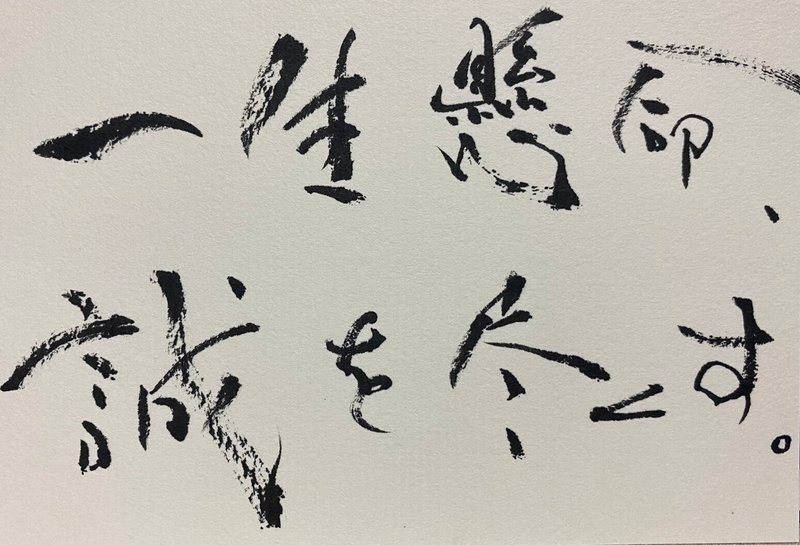 一生懸命、
誠を尽くす。